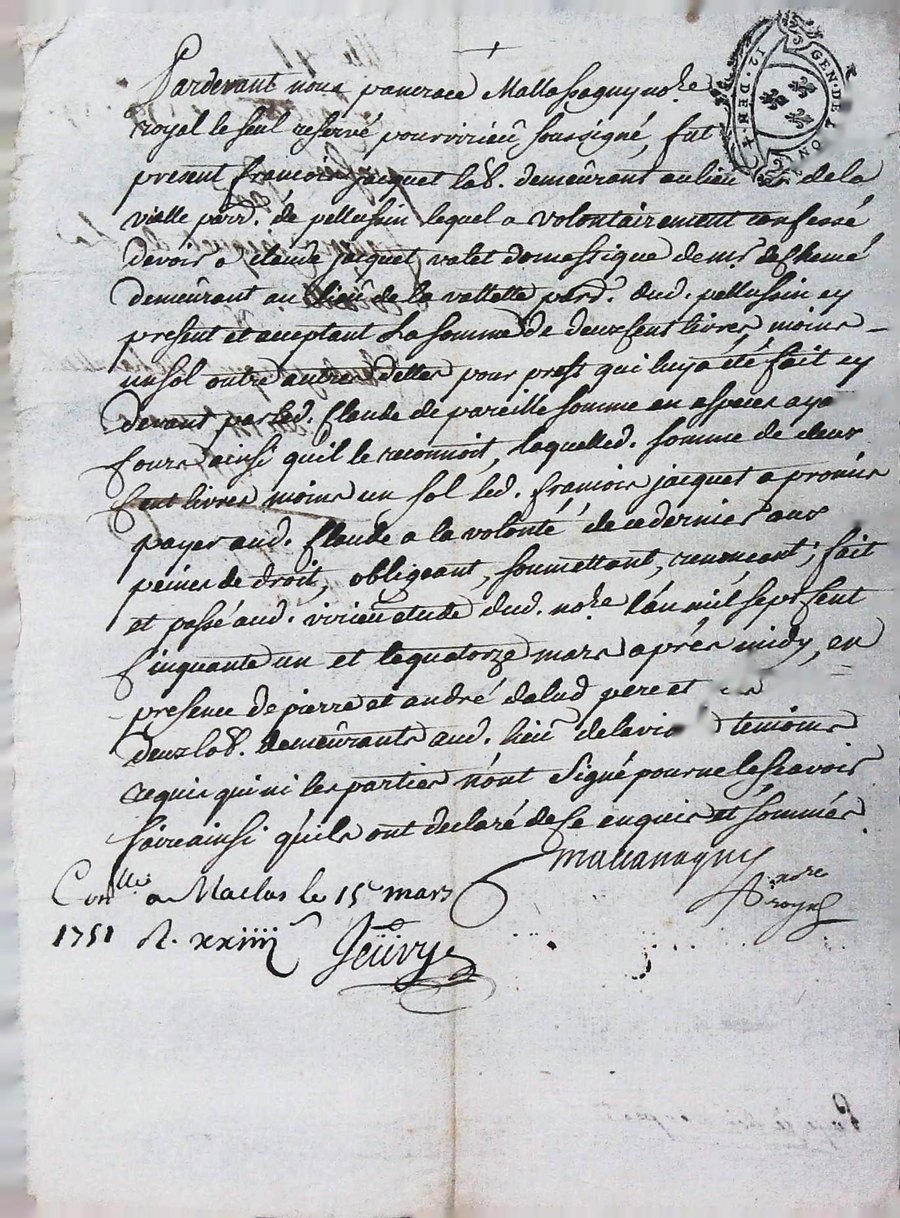 GEN. DE L ON
12. DEN. 4
Pardevant nous pancrace Mallassagny no.re
royal le seul reservé pour virieû soussigné, fut
present francois jacquet lab.r demeûrant au lieu de la
vialle parr. de pellussin lequel a volontairement confessé
devoir a claude jacquet valet domestique de mr.
demeûrant au lieû de la vallette parr. dud. pellussin cy
present et acceptant La somme de deux sent livres, moins
un sol outre autres dettes pour prest qui luy a été fait cy
devant par led. Claude de pareille somme en especes ayo
cours ainsi qu'il le reconnoit, laquelled. somme de deux
Cent livres moins un sol led. francois jacquet a promis
payer aud. Claude a la volonté de ce dernier aux
peines de droit, obligeant, soumettant, renonceant; fait
et passé aud. virieu etude dud. no.re l'an mil sept Cent
Cinquante un et le quatorze mars après midy, en
presence de pierre et andré dalud pere et
deux lab.r demeûrants aud. lieû de la vi temoins
requis qui ni les parties n'ont signé pour ne le scavoir
faire ainsi qu'ils ont declaré de ce enquis et sommés
Mallassagny
no.re
royal
Con.llé a Maclas le 15e mars
1751 R. xxiiii s
Jeüvy